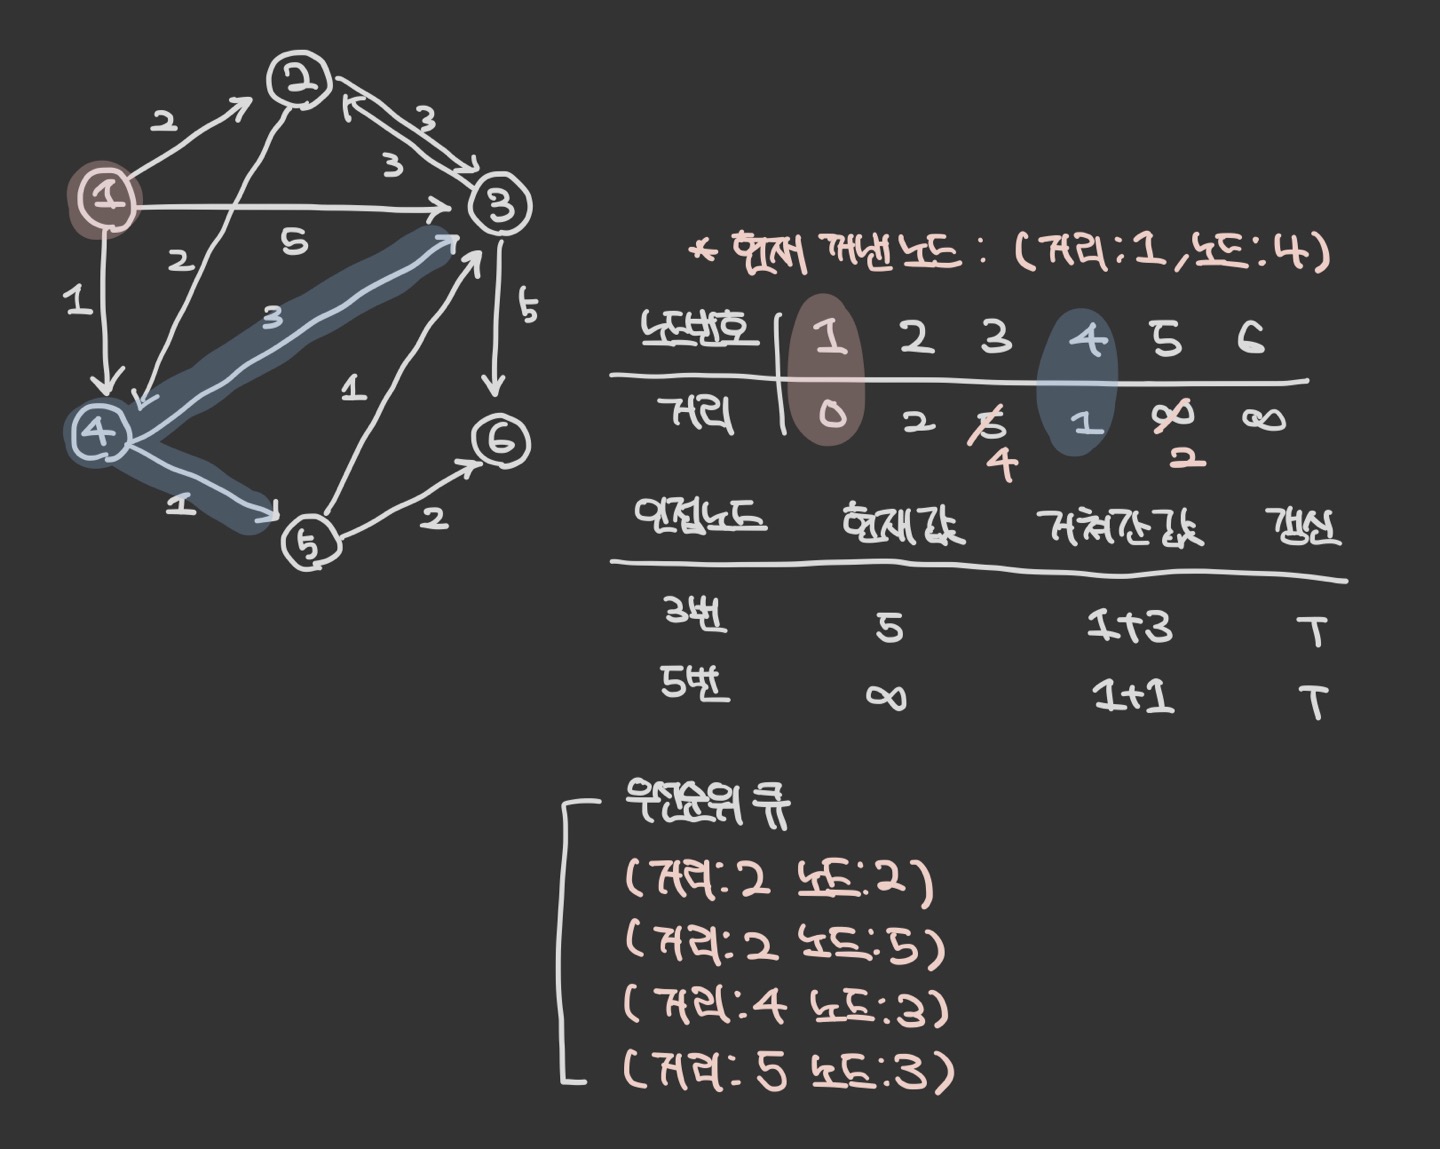 2
2
3
3
1
3
5
2
1
3
5
1
4
6
1
2
5
* 현재 꺼낸 노드 : (거리:1, 노드:4)
노드번호 1 2 3 4 5 6
거리 0 2 5 1 ∞ ∞
4 2
인접노드 현재 값 거쳐간 값 갱신
3번 5 1+3 T
5번 ∞ 1+1 T
우선순위 큐
(거리:2 노드:2)
(거리:2 노드:5)
(거리:4 노드:3)
(거리:5 노드:3)